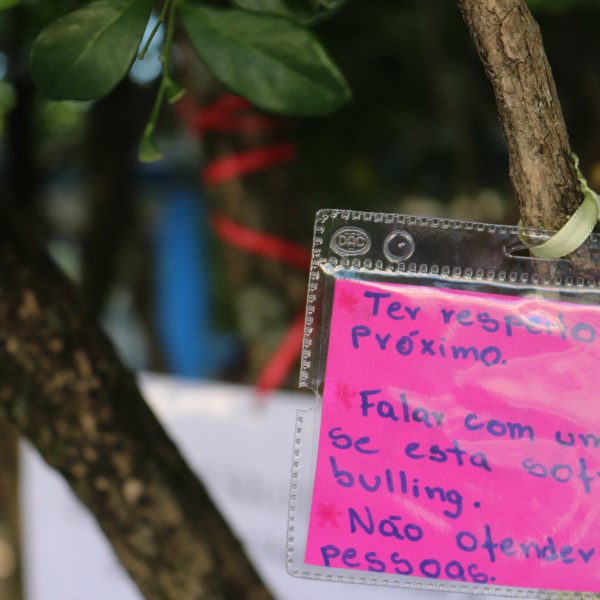 DAC
Ter respeito
próximo.
Falar com um
se esta sofr
bulling.
Não ofender
pessoas.